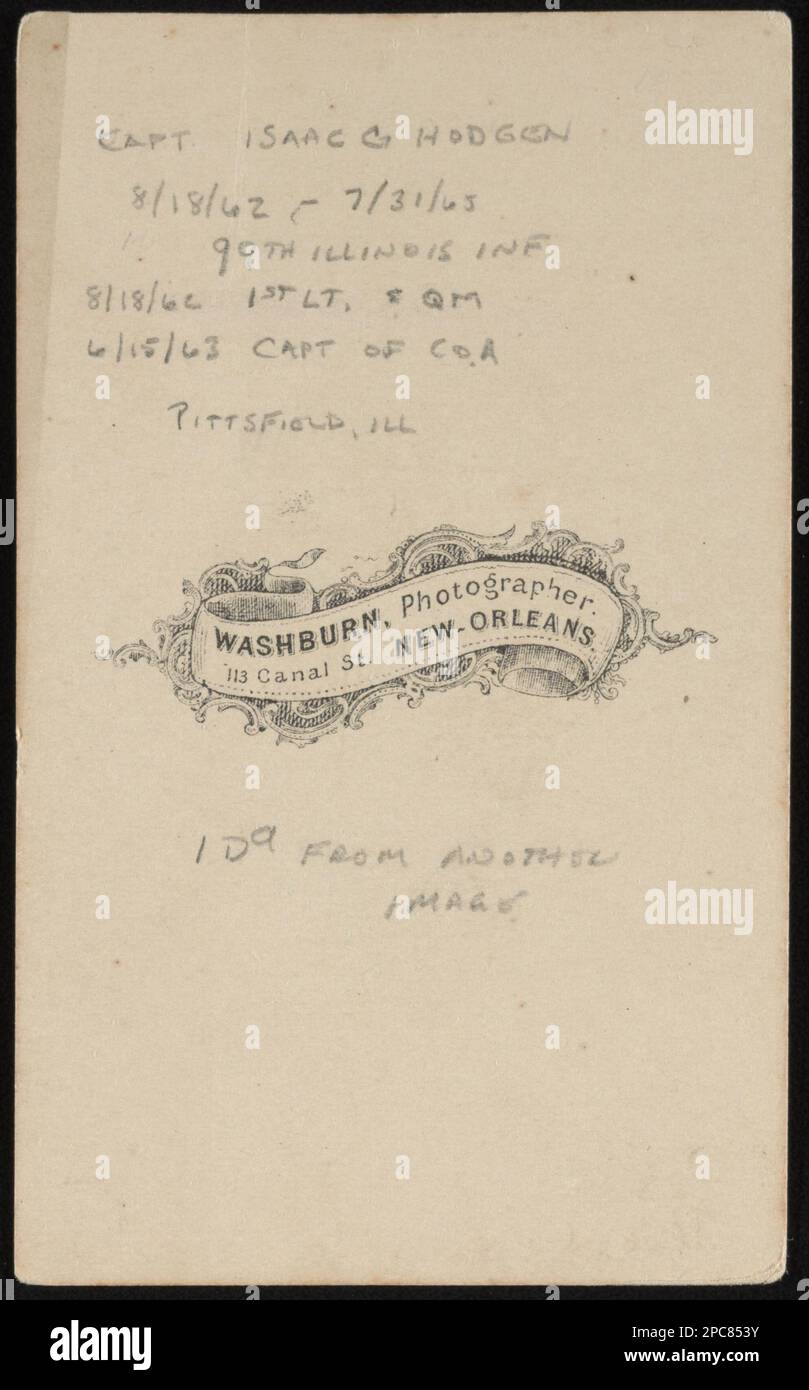 CAPT ISAAC G HODGEN
8/18/62 - 7/31/65
99TH ILLINOIS INF
8/18/62 1ST LT. & QM
6/15/63 CAPT OF CO. A
PITTSFIELD, ILL
WASHBURN, Photographer.
113 Canal St. NEW-ORLEANS.
IDd FROM ANOTHER
IMAGE
alamy
alamy
alamy
Image ID: 2PC853Y
www.alamy.com